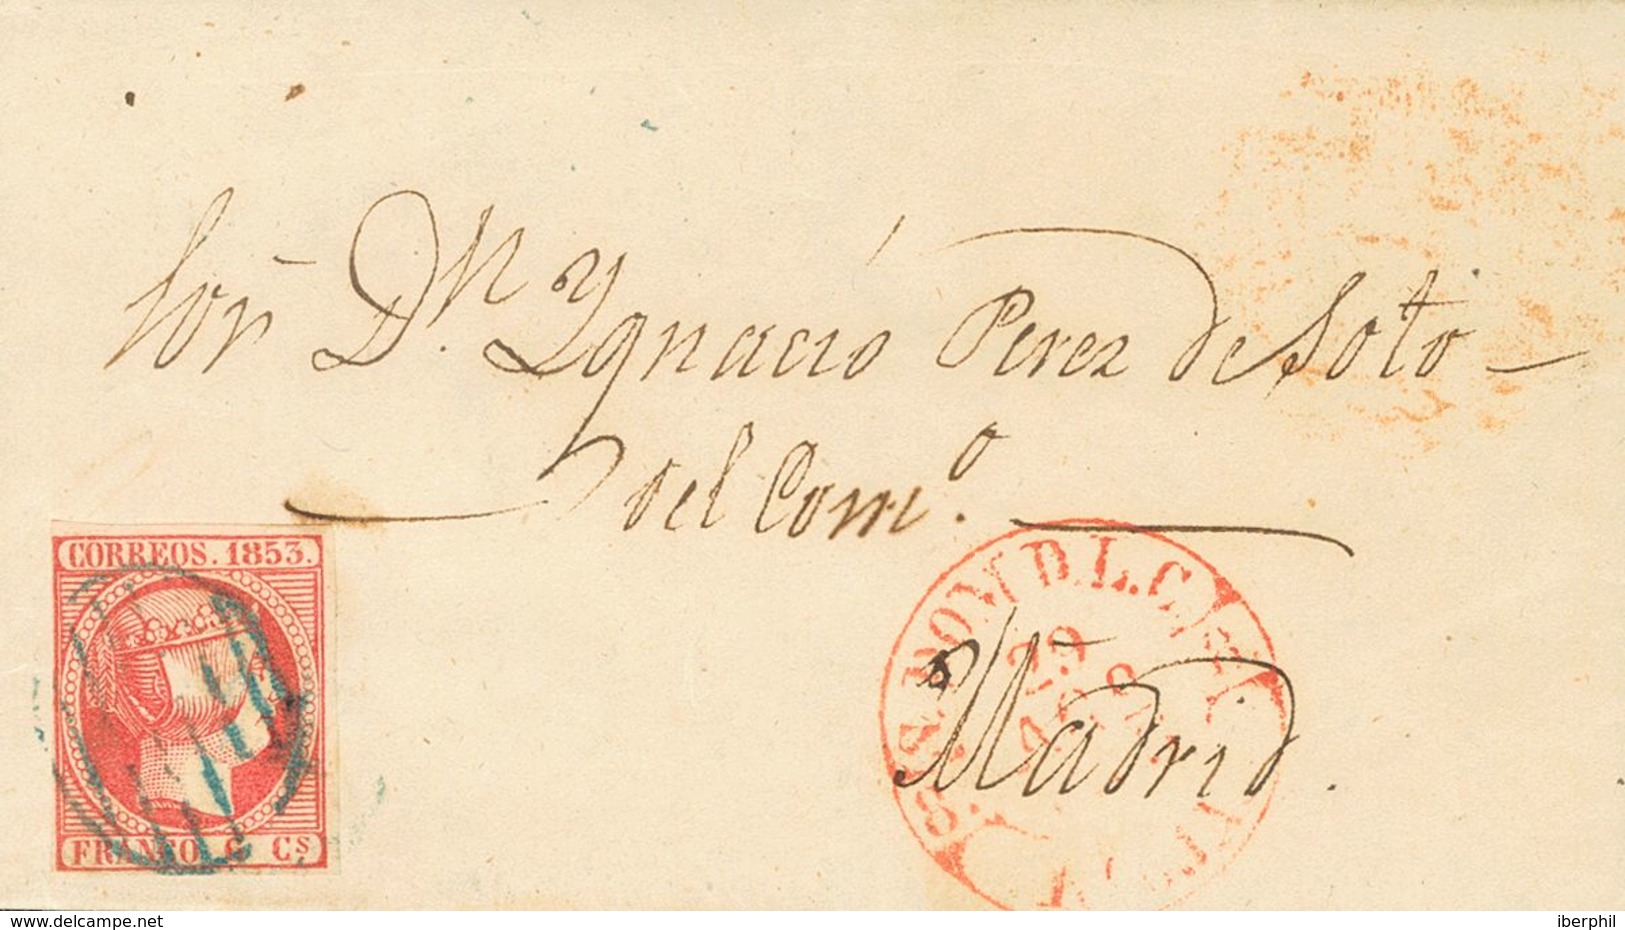 Sor. Dn. Ygnacio Perez de Soto
del Como.
Madrid.
CORREOS. 1853.
FRANCO. 6 Cs.
STO DOMO D.L. CALZ
29
www.delcampe.net
iberphil